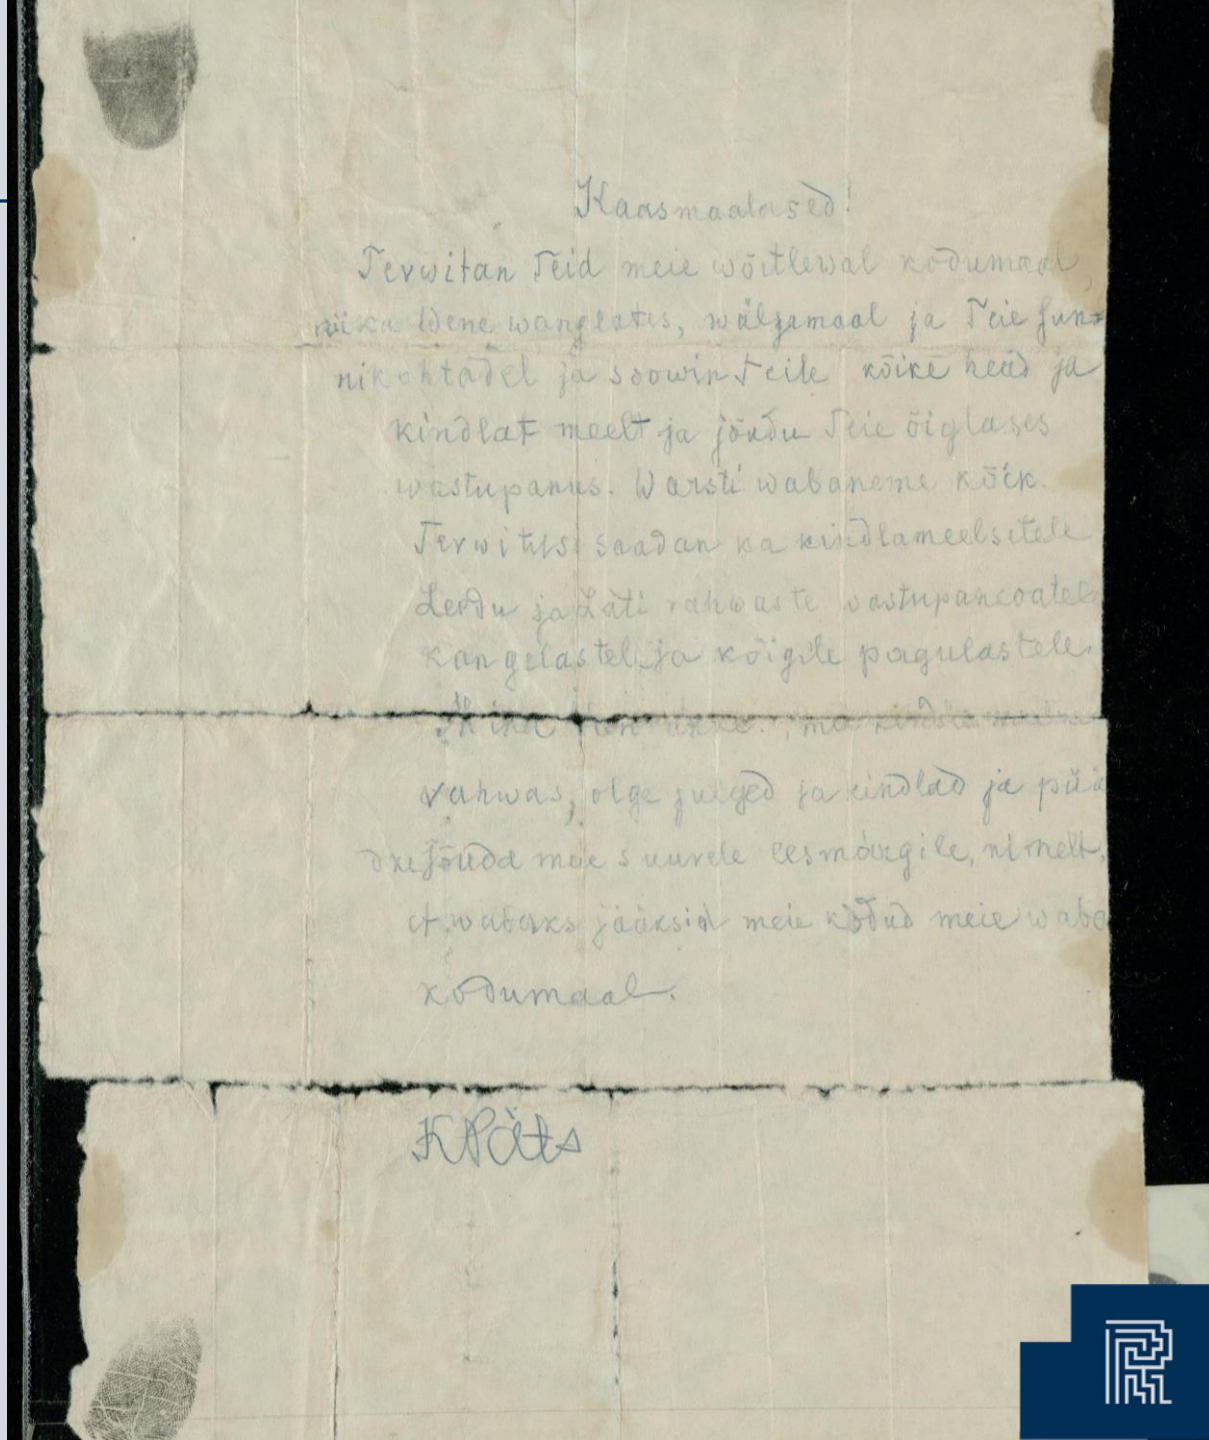 Kaasmaalased!
Terwitan Teid meie wõitlewal kodumaal,
niika Wene wanglates, wäljamaal ja Teie sun=
nikohtadel ja soowin Teile kõike head ja
kindlat meelt ja jõudu Teie õiglases
wastupanus. Warsti wabaneme kõik.
Terwitusi saadan ka kindlameelsetele
Leedu ja Läti rahwaste
kangelastele ja kõigile pagulastele.
Minu
rahwas, olge julged ja kindlad ja püü
dke jõuda meie suurele eesmärgile, nimelt,
et wabaks jääksid meie kodud meie waba
kodumaal.
KPäts